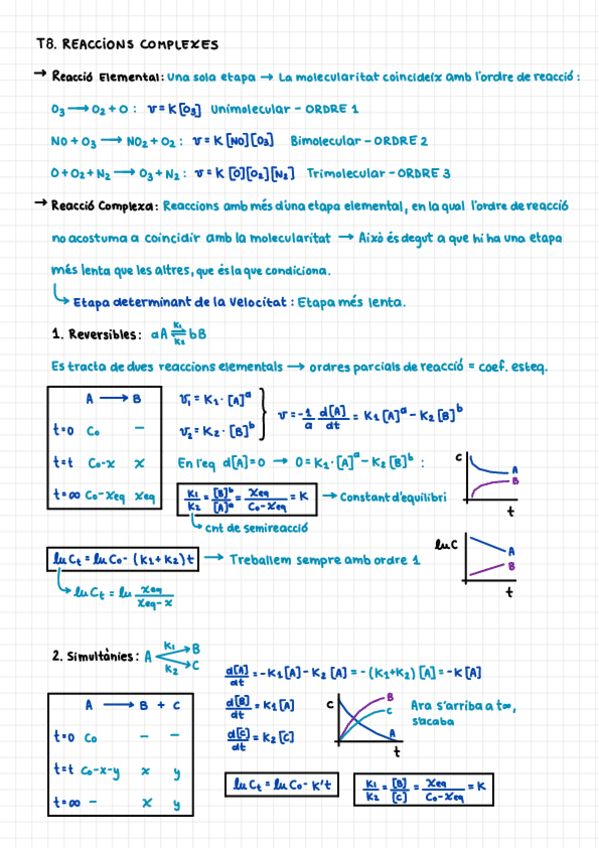 T8. REACCIONS COMPLEXES
→ Reacció Elemental: Una sola etapa → La molecularitat coincideix amb l'ordre de reacció:
O₃ → O₂ + O : v = K [O₃] Unimolecular - ORDRE 1
NO + O₃ → NO₂ + O₂ : v = K [NO][O₃] Bimolecular - ORDRE 2
O + O₂ + N₂ → O₃ + N₂ : v = K [O][O₂][N₂] Trimolecular - ORDRE 3
→ Reacció Complexa: Reaccions amb més d'una etapa elemental, en la qual l'ordre de reacció
no acostuma a coincidir amb la molecularitat → Això és degut a que hi ha una etapa
més lenta que les altres, que és la que condiciona.
↳ Etapa determinant de la Velocitat : Etapa més lenta.
1. Reversibles: aA ⇌ bB
K₁
K₂
Es tracta de dues reaccions elementals → ordres parcials de reacció = coef. esteq.
A → B
t=0 C₀ –
t=t C₀-x x
t=∞ C₀-xeq xeq
v₁ = K₁ · [A]ᵃ
v₂ = K₂ · [B]ᵇ
v = -1/a d[A]/dt = K₁ [A]ᵃ - K₂ [B]ᵇ
En l'eq d[A]=0 → 0 = K₁ · [A]ᵃ - K₂ [B]ᵇ :
K₁/K₂ = [B]ᵇ/[A]ᵃ = xeq/C₀-xeq = K → Constant d'equilibri
↳ cnt de semireacció
C
A
B
t
ln Ct = ln C₀ - (K₁+K₂) t → Treballem sempre amb ordre 1
↳ ln Ct = ln xeq/xeq-x
ln C
A
B
t
2. Simultànies: A
K₁ B
K₂ C
d[A]/dt = -K₁ [A] - K₂ [A] = -(K₁+K₂) [A] = -K [A]
d[B]/dt = K₁ [A]
d[C]/dt = K₂ [C]
A → B + C
t=0 C₀ – –
t=t C₀-x-y x y
t=∞ – x y
C
B
C
A
t
Ara s'arriba a t∞,
s'acaba
ln Ct = ln C₀ - K't
K₁/K₂ = [B]/[C] = xeq/C₀-xeq = K